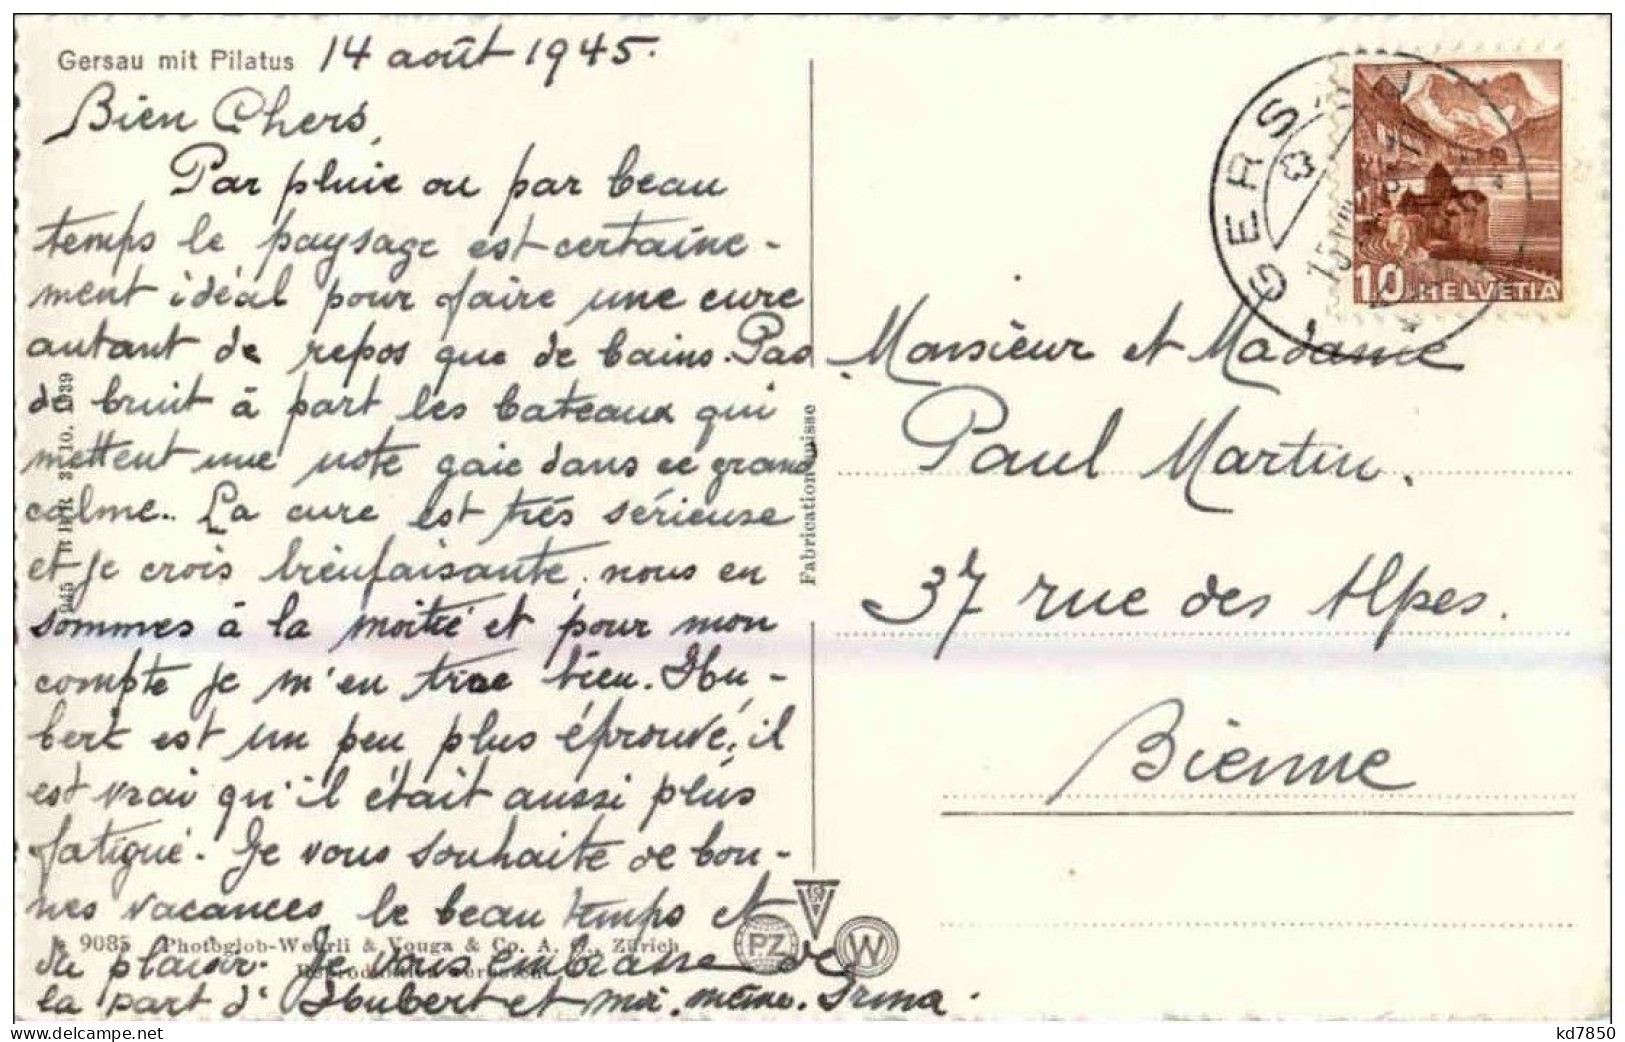 Gersau mit Pilatus 14 août 1945.
Bien Chers,
Par pluie ou par beau
temps le paysage est certaine-
ment idéal pour faire une cure
autant de repos que de bains. Pas
de bruit à part les bateaux qui
mettent une note gaie dans ce grand
calme. La cure est très sérieuse
et je crois bienfaisante, nous en
sommes à la moitié et pour mon
compte je m'en tire bien. Hu-
bert est un peu plus éprouvé, il
est vrai qu'il était aussi plus
fatigué. Je vous souhaite de bon-
nes vacances, le beau temps et
du plaisir. Je vous embrasse de
la part d'Hubert et moi-même. Irma.
9085 Photoglob-Wehrli & Vouga & Co. A. G., Zürich
Fabrication suisse
PZ
W
GERS
10 HELVETIA
Monsieur et Madame
Paul Martin.
37 rue des Alpes.
Bienne
kd7850